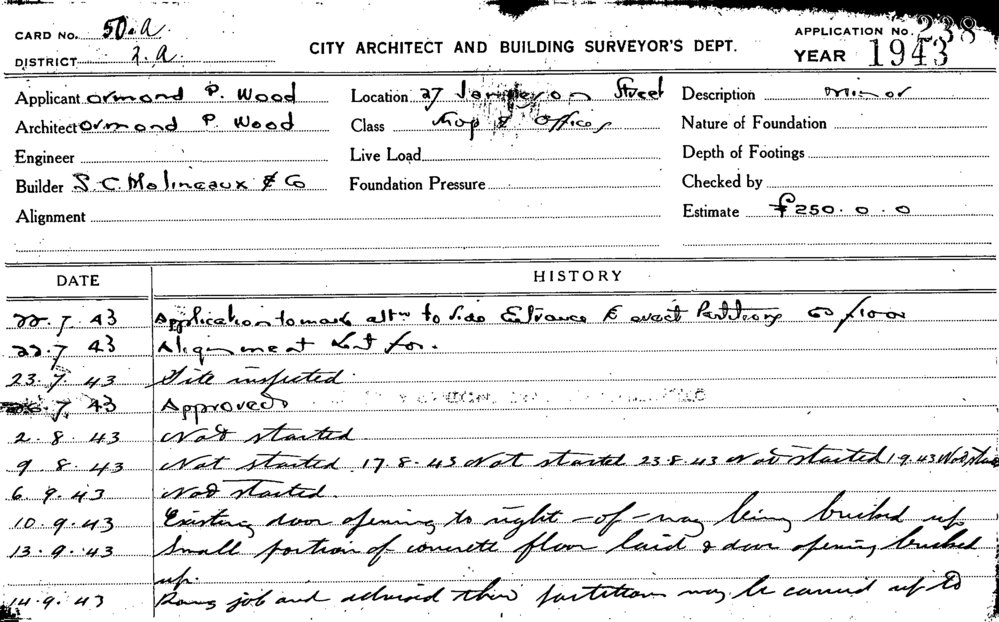 CARD No. 50.a
APPLICATION No. 238
DISTRICT 2.a.
CITY ARCHITECT AND BUILDING SURVEYOR'S DEPT.
YEAR 1943
Applicant Ormond P. Wood Location 27 Street Description Minor
Architect Ormond P. Wood Class Shop & Offices Nature of Foundation
Engineer Live Load Depth of Footings
Builder S. C. Molineaux & Co Foundation Pressure Checked by
Alignment Estimate £250.0.0
DATE HISTORY
22.7.43 Application to make altn to side Entrance & erect Partitions floor
22.7 43 Alignment for.
23.7.43 Site inspected.
7. 43 Approved
2.8.43 Not started
9 8.43 Not started 17.8.43 Not started 23.8.43 Not started 1 9.43 Not
6 9.43 Not started.
10.9.43 Existing door opening to right-of-way being bricked up
13.9.43 Small portion of concrete floor laid & door opening bricked
up.
14.9.43 Rang job and advised them partition may be carried up to